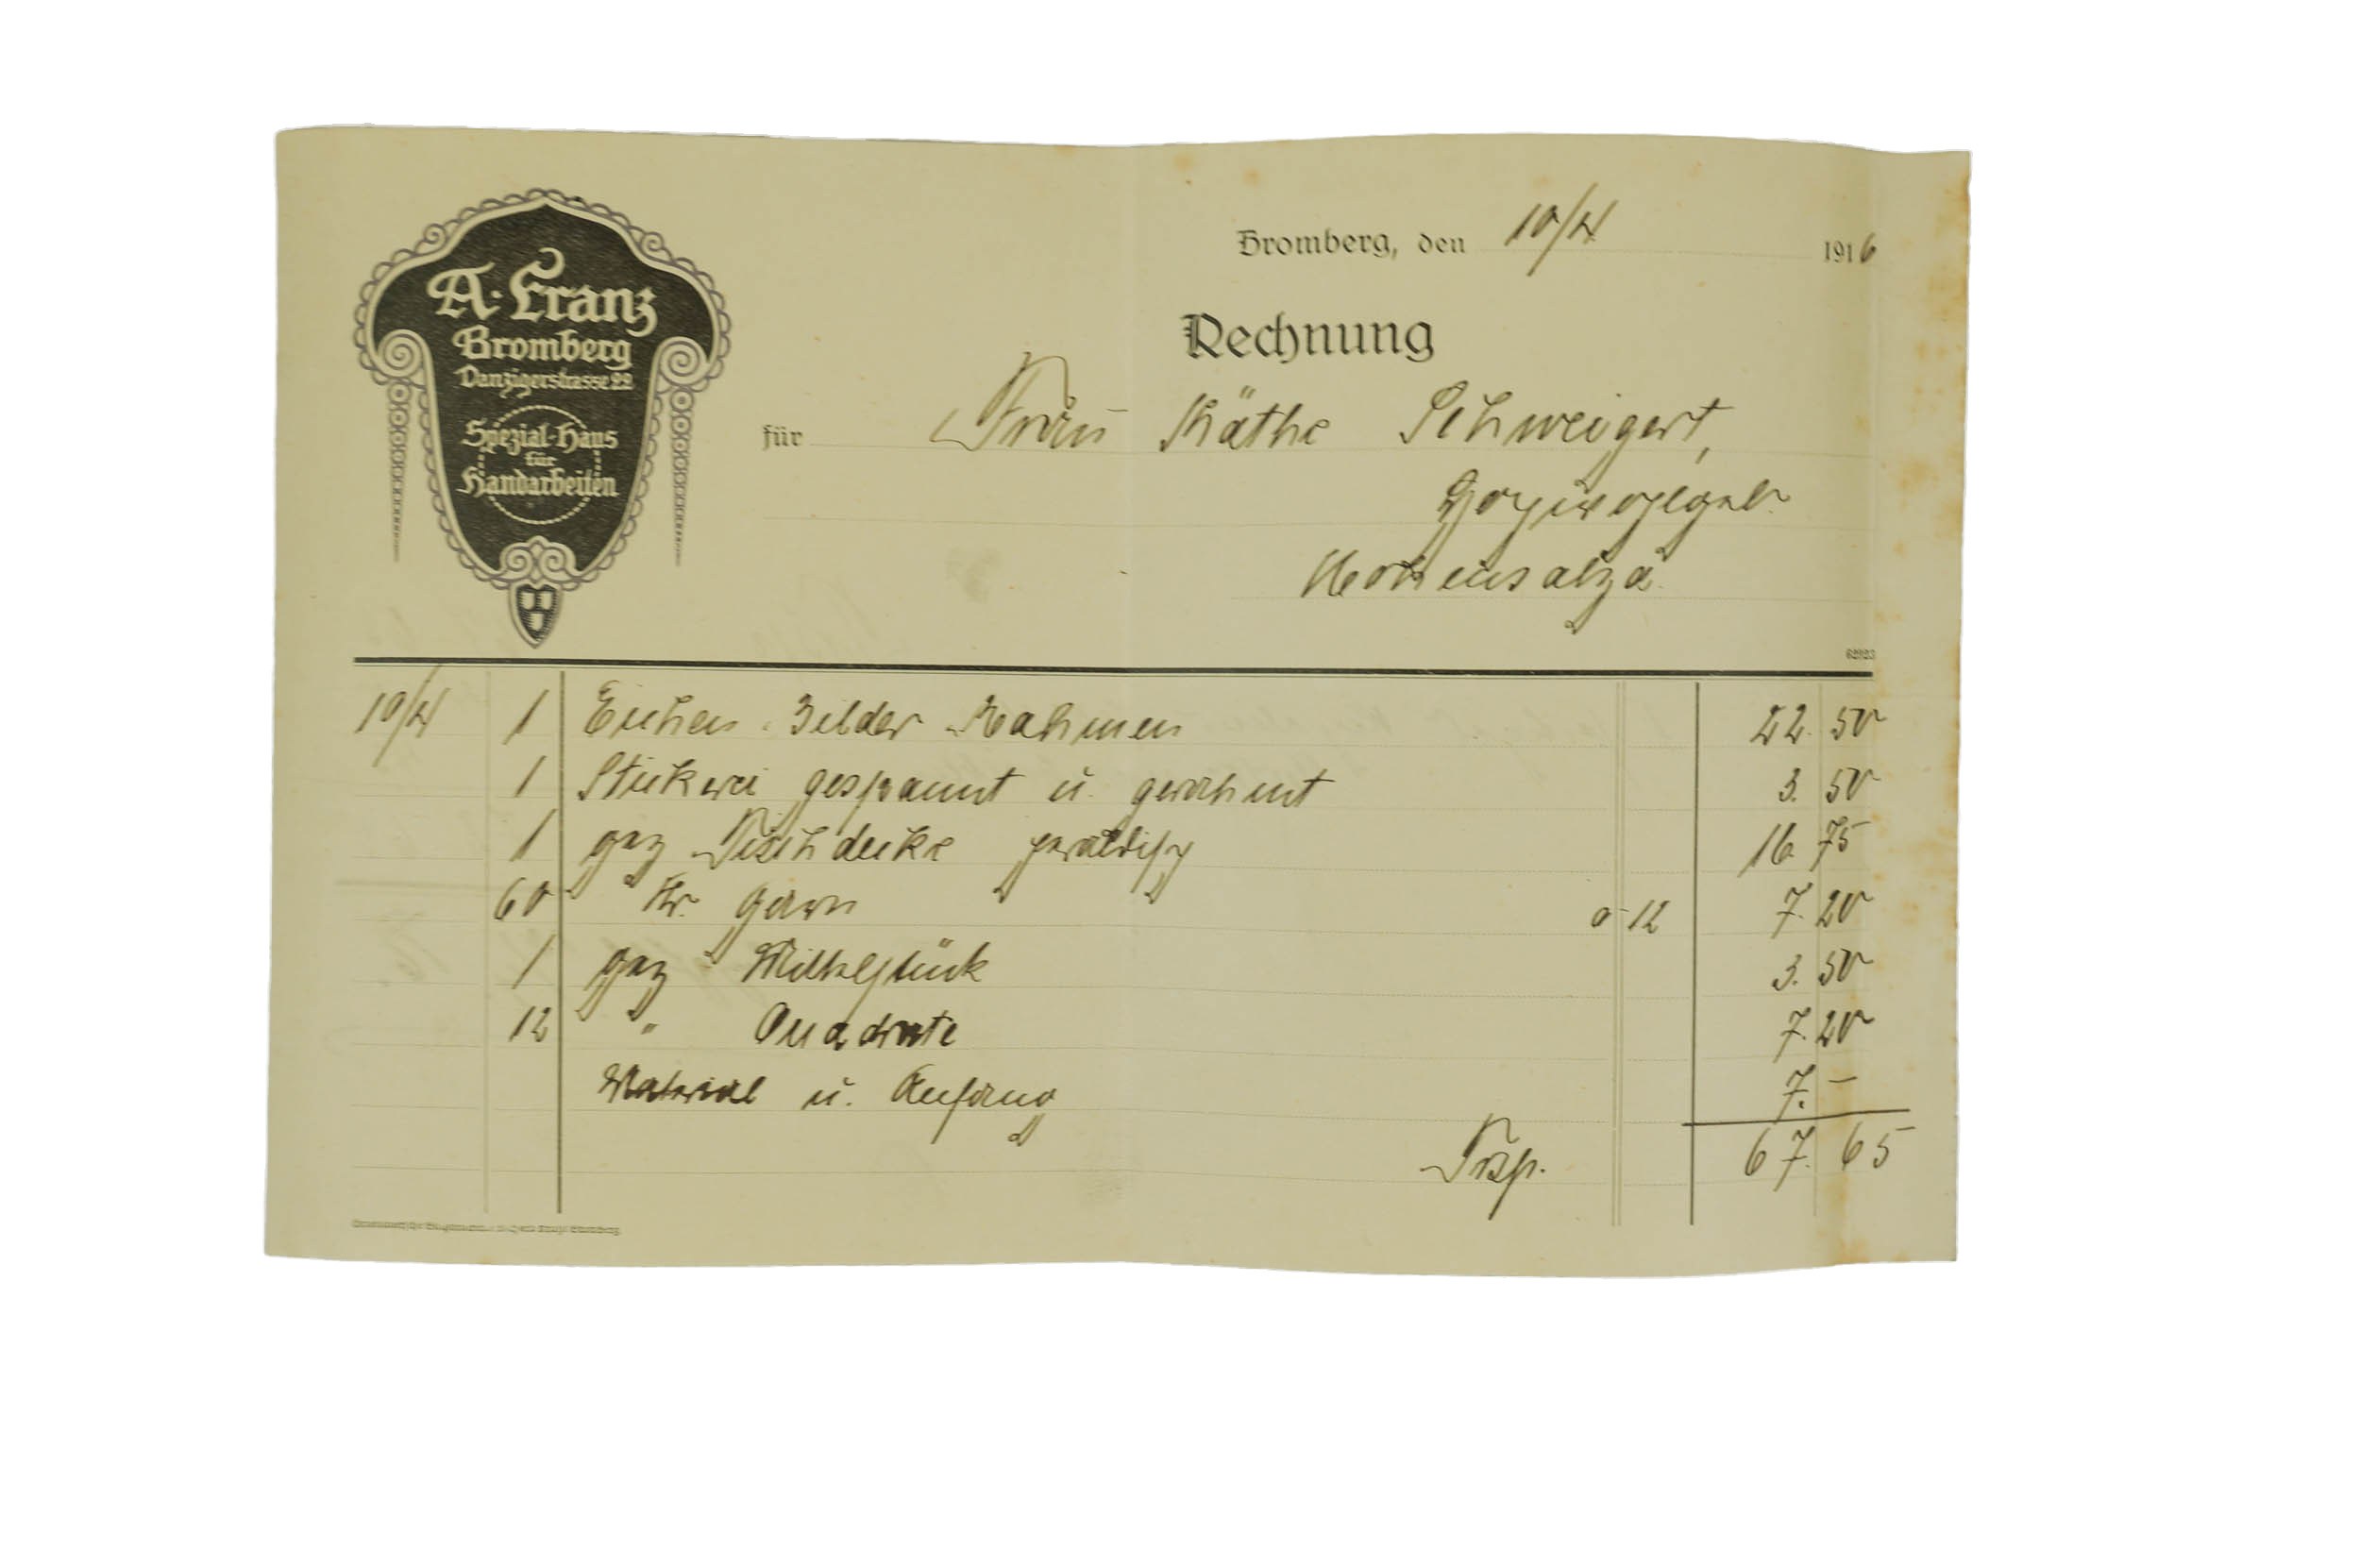 A. Franz
Bromberg
Danzigerstrasse 22
Spezial-Haus
für
Handarbeiten
Bromberg, den 10/4 1916
Rechnung
für Frau Käthe Schweigert,
Hohensalza
62123
10/4 1 Eichen Bilder Rahmen 22. 50
1 Stickerei gespannt u. gerahmt 3. 50
1 gez Tischdecke 16 75
60 Gr. Garn a 12 7. 20
1 gez Mittelstück 3. 50
12 " Quadrate 7. 20
Material u. Anfang 7. –
67. 65